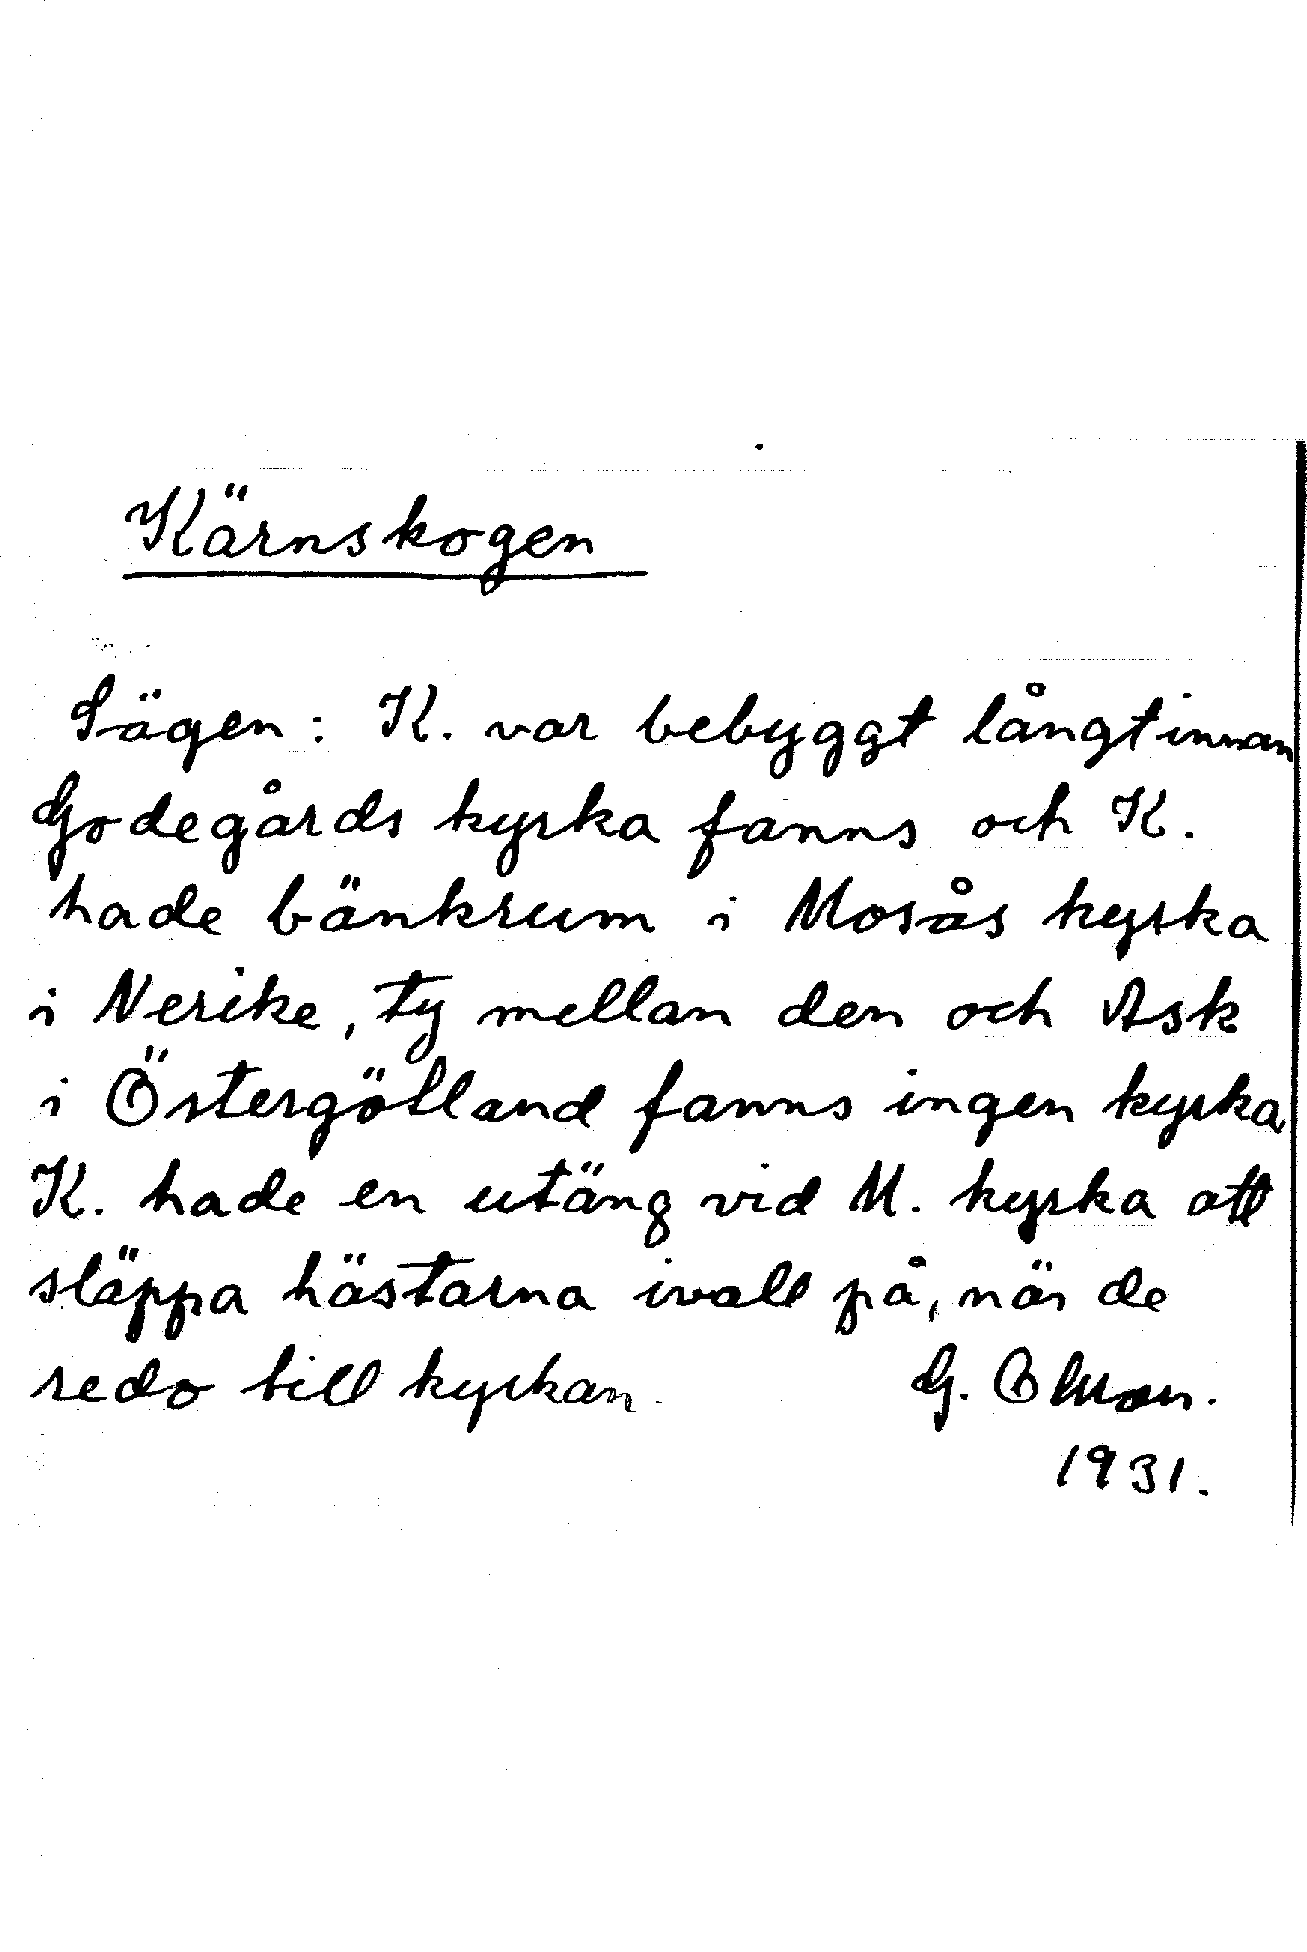 Kärnskogen
Sägen: K. var bebyggt långt innan
Godegårds kyrka fanns och K.
hade bänkrum i Mosås kyrka
i Nerike, ty mellan den och Ask
i Östergötland fanns ingen kyrka,
K. hade en utäng vid M. kyrka att
släppa hästarna ivall på, när de
redo till kyrkan. G.
1931.